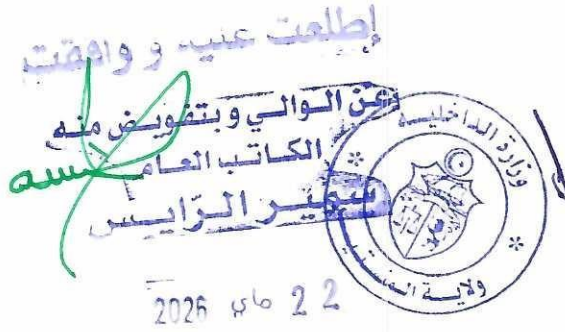 إطلعت عليه و وافقت
وعن الوالي وبتفويض منه
الكاتب العام
سمير الرّايس
22 ماي 2026
وزارة الداخلية
ولاية المنستير